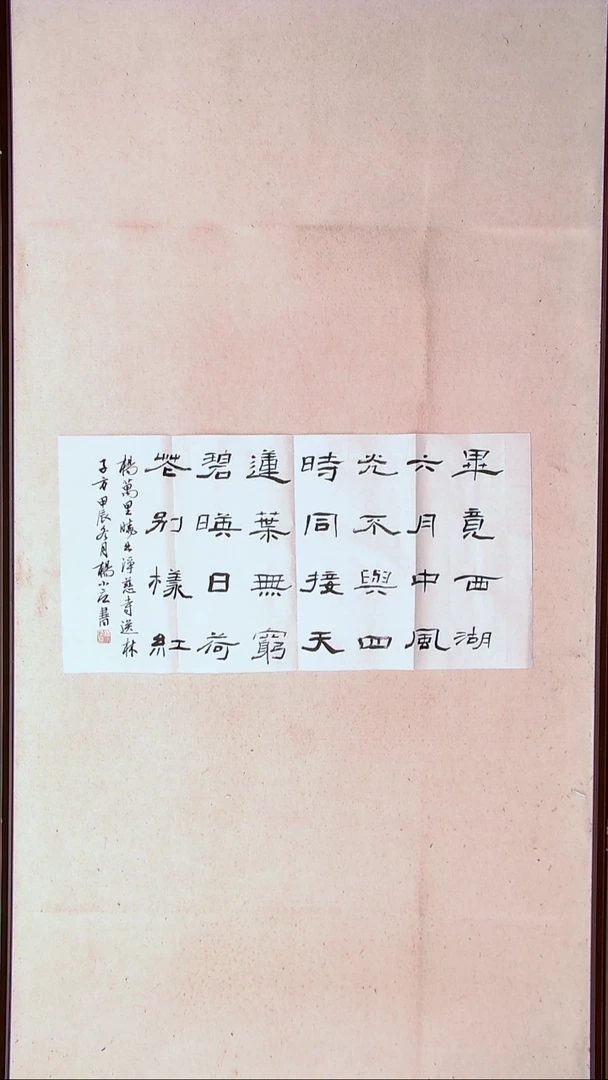 畢竟西湖
六月中風
光不與四
時同接天
蓮葉無窮
碧暎日荷
花别樣紅
楊萬里曉出淨慈寺送林
子方甲辰冬月楊小京書